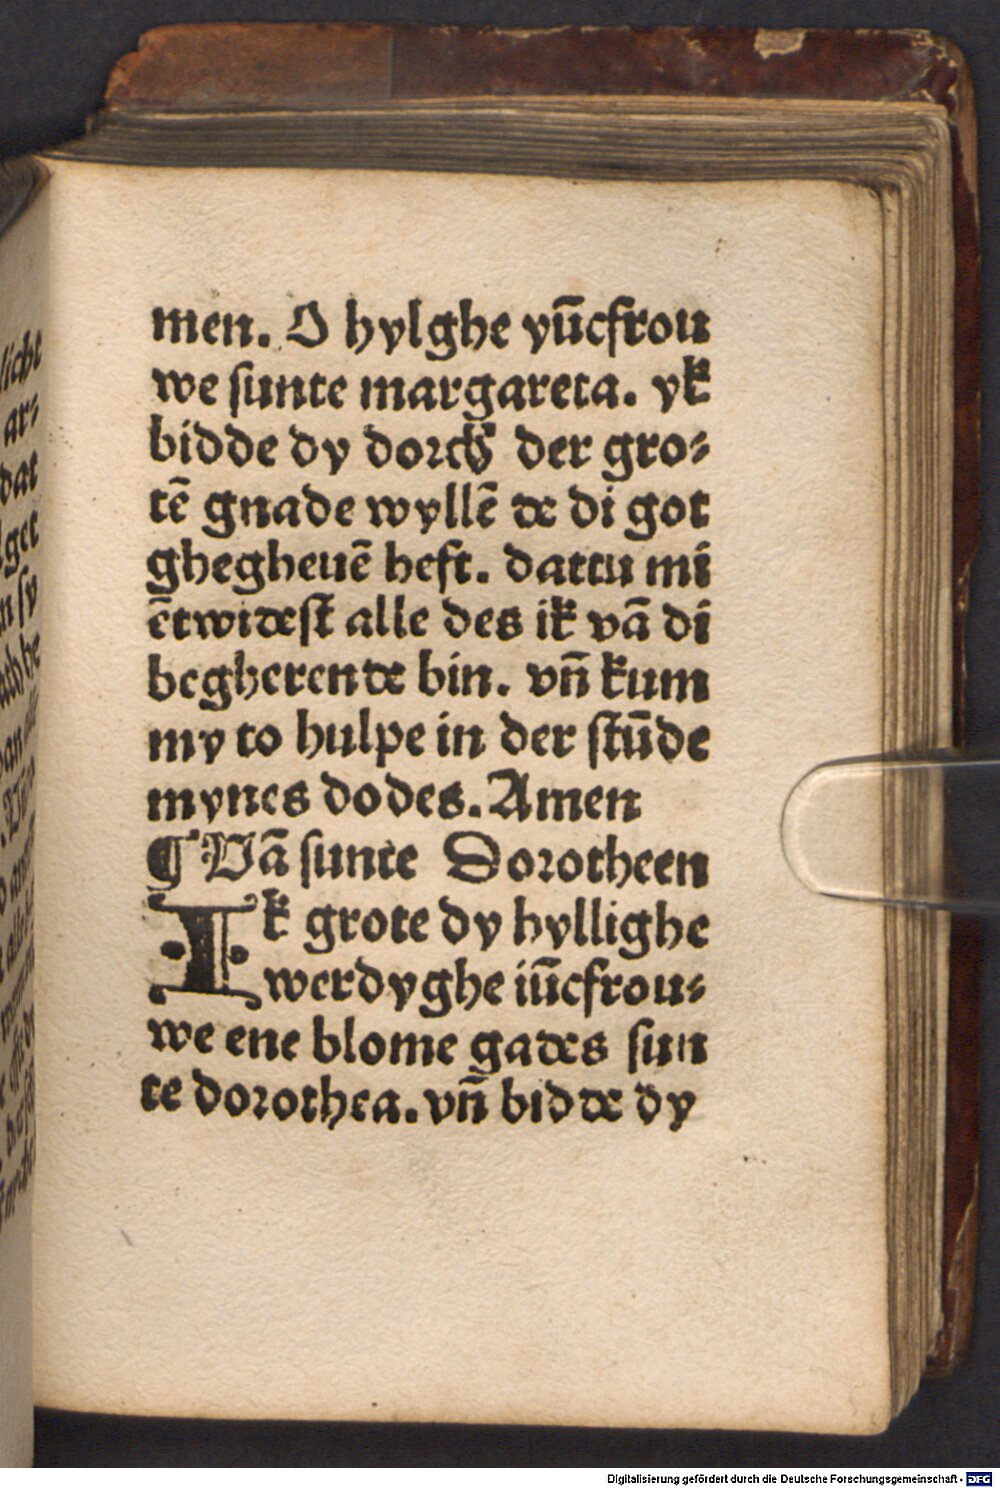 men. O hylghe yūcfrou
we sunte margareta. yk
bidde dy dorch der gro⸗
tē gnade wyllē de di got
ghegheuē heft. dattu mi
ētwidest alle des ik vā di
begherende bin. vn̄ kum
my to hulpe in der stūde
mynes dodes. Amen
¶ Vā sunte Dorotheen
Ik grote dy hyllighe
werdyghe iūcfrou⸗
we ene blome gades sun
te dorothea. vn̄ bidde dy
Digitalisierung gefördert durch die Deutsche Forschungsgemeinschaft - DFG